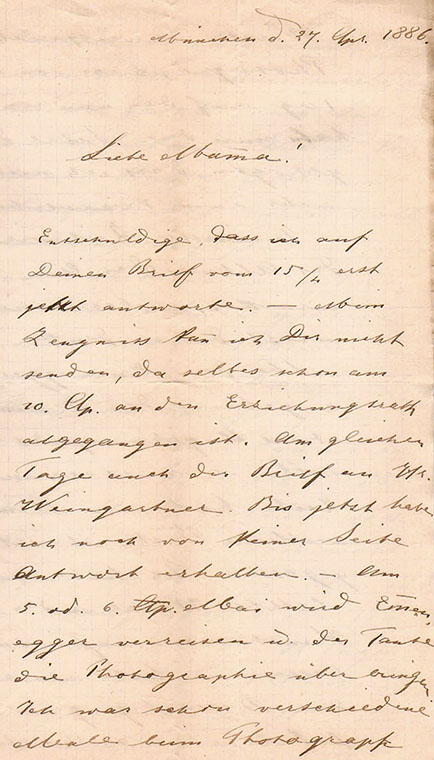 München d. 27. Apr. 1886.
Liebe Mama!
Entschuldige, dass ich auf
Deinen Brief vom 15/4 erst
jetzt antworte. — Mein
Zeugniss kan ich Dir nicht
senden, da selbes schon am
10. Ap. an den Erziehungsrath
abgegangen ist. Am gleichen
Tage auch der Brief an Hr.
Weingartner. Bis jetzt habe
ich noch von keiner Seite
Antwort erhalten. — Am
5. od. 6. Mai wird Emen-
egger verreisen u. der Tante
die Photographie überbringen
Ich war schon verschiedene
Male beim Photograph